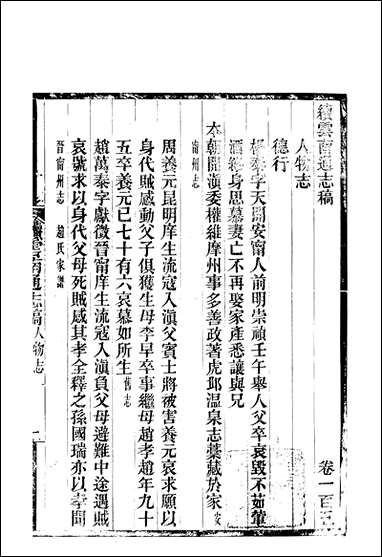 續雲南通志稿
卷一百五
人物志
德行
楊泰字天開安甯人前明崇禎壬午舉人父卒哀毀不茹葷
酒終身思慕妻亡不再娶家產悉讓與兄
本朝開滇委權維摩州事多善政著虎邱温泉志藁藏於家安
甯州志
周養元昆明庠生流寇入滇父賓士將被害養元哀求願以
身代賊感動父子俱獲生母李早卒事繼母趙孝趙年九十
五卒養元已七十有六哀慕如所生舊志
趙萬泰字獻徵晉甯庠生流寇入滇負父母避難中途遇賊
哀號求以身代父母死賊感其孝全釋之孫國瑞亦以孝聞
晉甯州志 趙氏家譜
續雲南通志稿人物志
一